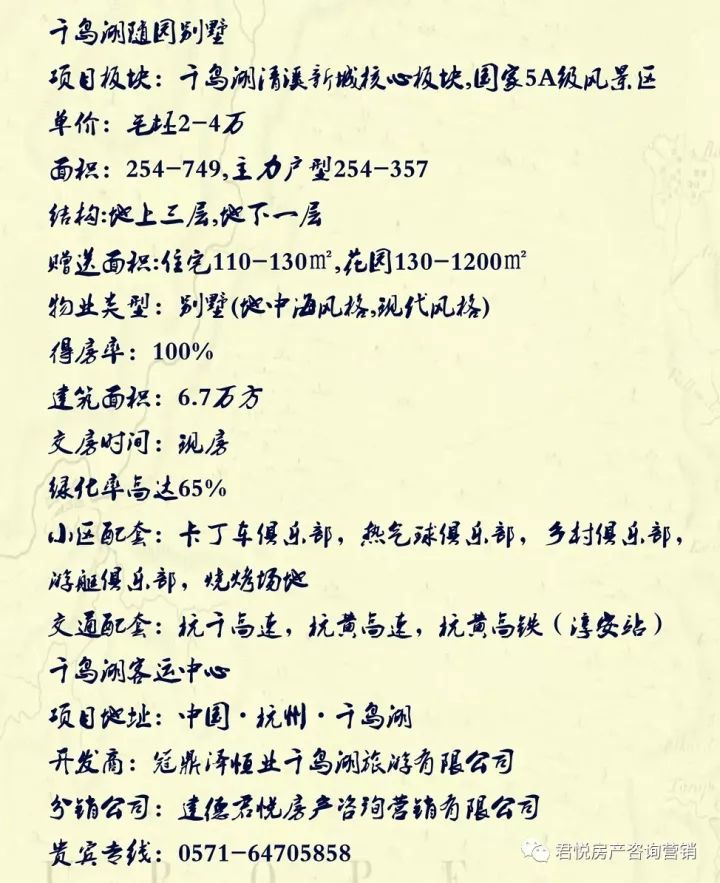 千岛湖随园别墅
项目板块：千岛湖清溪新城核心板块,国家5A级风景区
单价：毛坯2-4万
面积：254-749,主力户型254-357
结构:地上三层,地下一层
赠送面积:住宅110-130㎡,花园130-1200㎡
物业类型：别墅(地中海风格,现代风格)
得房率：100%
建筑面积：6.7万方
交房时间：现房
绿化率高达65%
小区配套：卡丁车俱乐部，热气球俱乐部，乡村俱乐部，
游艇俱乐部，烧烤场地
交通配套：杭千高速，杭黄高速，杭黄高铁（淳安站）
千岛湖客运中心
项目地址：中国·杭州·千岛湖
开发商：冠鼎泽恒业千岛湖旅游有限公司
分销公司：建德君悦房产咨询营销有限公司
贵宾专线：0571-64705858
君悦房产咨询营销